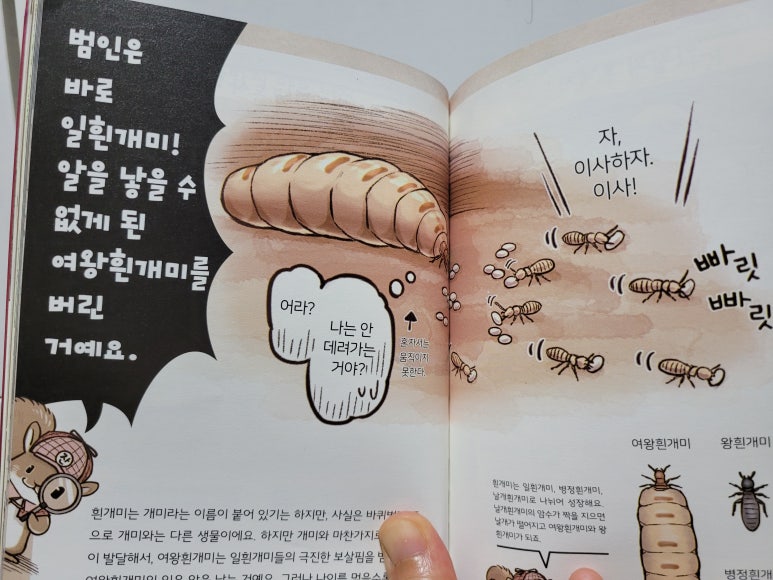 범인은
바로
일흰개미!
알을 낳을 수
없게 된
여왕흰개미를
버린
거예요.
어라?
나는 안
데려가는
거야?!
혼자서는
움직이지
못한다.
자,
이사하자.
이사!
빠릿
빠릿
흰개미는 개미라는 이름이 붙어 있기는 하지만, 사실은
으로 개미와는 다른 생물이에요. 하지만 개미와 마찬가지로
이 발달해서, 여왕흰개미는 일흰개미들의 극진한 보살핌을
흰개미는 일흰개미, 병정흰개미,
날개흰개미로 나뉘어 성장해요.
날개흰개미의 암수가 짝을 지으면
날개가 떨어지고 여왕흰개미와 왕
흰개미가 되죠.
여왕흰개미
왕흰개미
병정흰개미